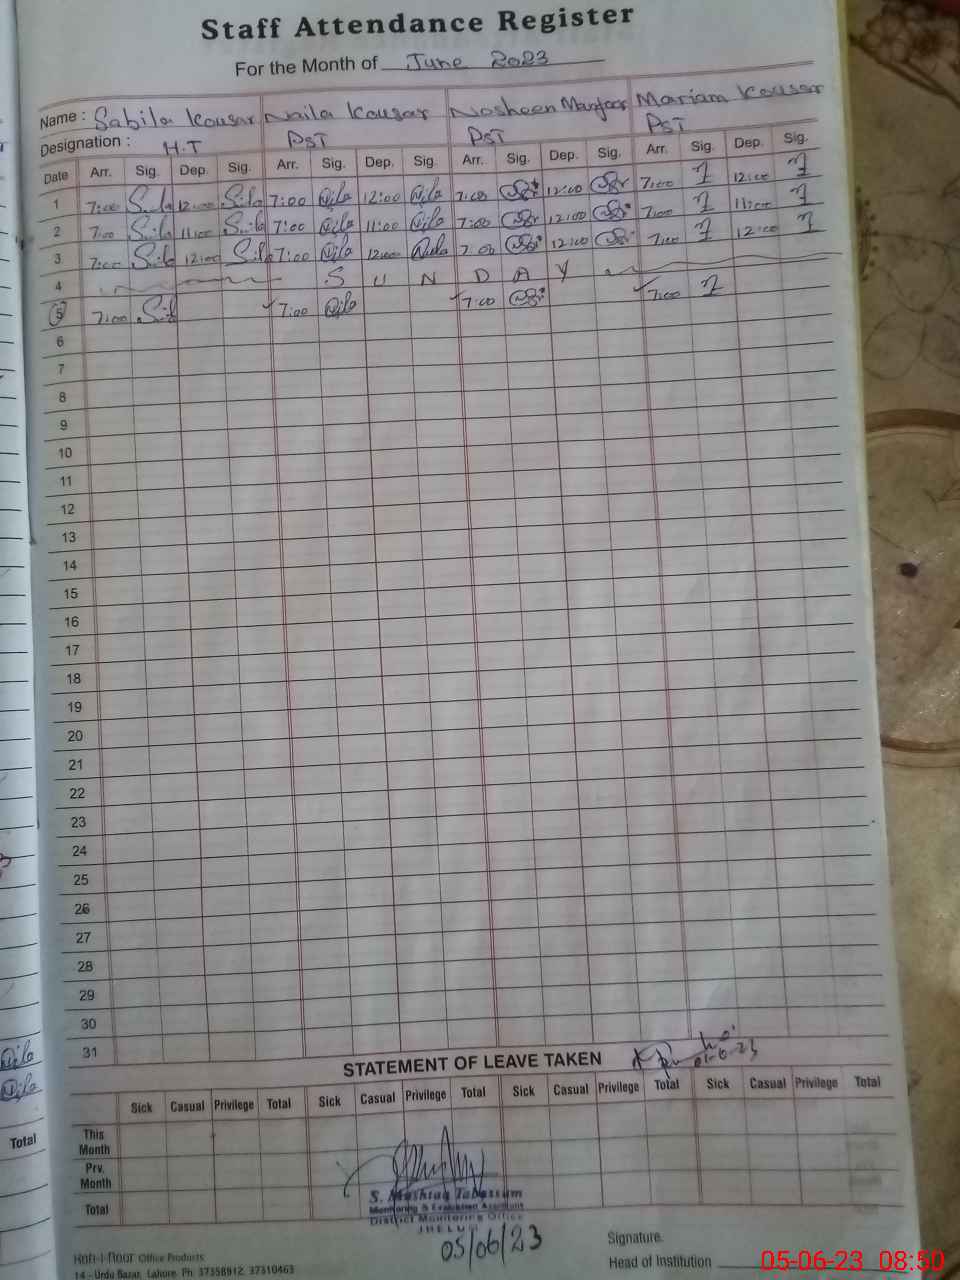 Staff Attendance Register
For the Month of June 2023
Name : Sabila Kousar Naila Kousar Nosheen Manzoor Mariam Kousar
Designation : H.T PST PST PST
Date Arr. Sig. Dep. Sig. Arr. Sig. Dep. Sig. Arr. Sig. Dep. Sig. Arr. Sig. Dep. Sig.
1 7:00 12:00 7:00 12:00 7:00 12:00 7:00 12:00
2 7:00 11:00 7:00 11:00 7:00 12:00 7:00 11:00
3 7:00 12:00 7:00 12:00 7:00 12:00 7:00 12:00
4 S U N D A Y
5 7:00 7:00 7:00 7:00
6
7
8
9
10
11
12
13
14
15
16
17
18
19
20
21
22
23
24
25
26
27
28
29
30
31
STATEMENT OF LEAVE TAKEN
Sick Casual Privilege Total Sick Casual Privilege Total Sick Casual Privilege Total Sick Casual Privilege Total
This Month
Prv. Month
Total
Total
S. Mushtaq Tabassum
Monitoring & Evaluation Assistant
District Monitoring Office
JHELUM
05/06/23
Signature.
Head of Institution
Office Products
14 - Urdu Bazar, Lahore. Ph: 37358912, 37310463
05-06-23 08:50